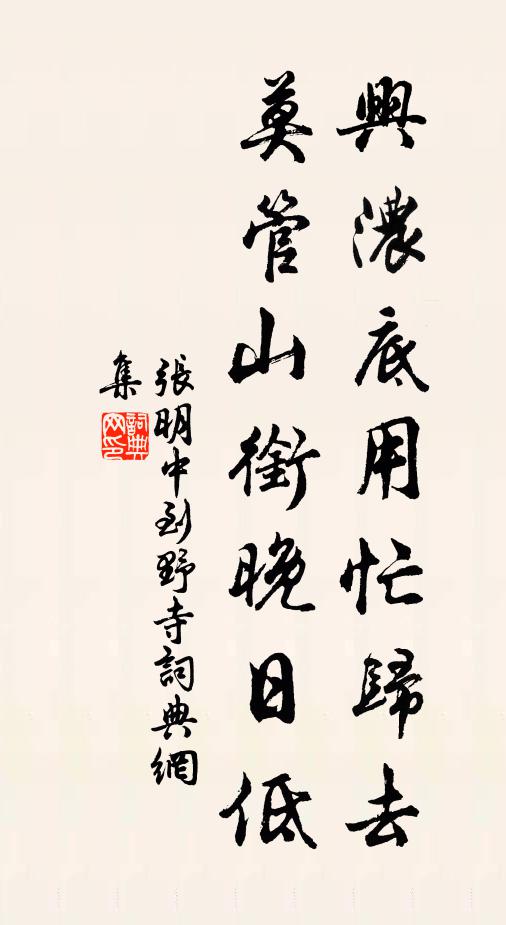 興濃底用忙歸去
莫管山銜晚日低
張明中到野寺詞典網
集
詞典
网印